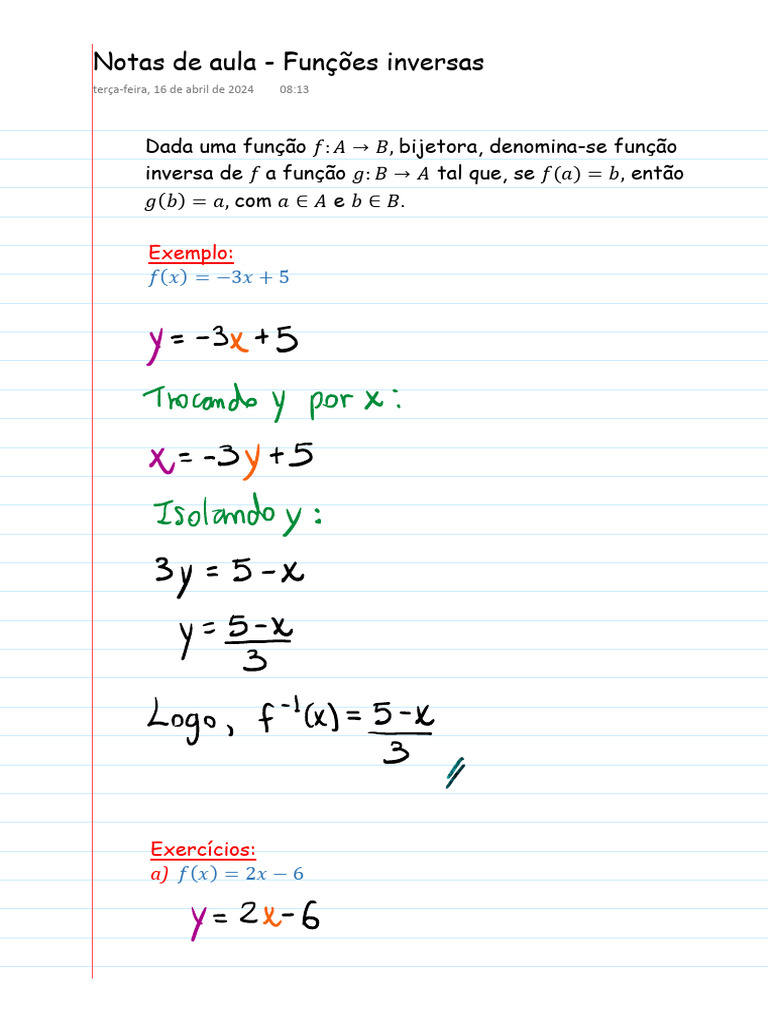 Notas de aula - Funções inversas
terça-feira, 16 de abril de 2024 08:13
Dada uma função f: A → B, bijetora, denomina-se função
inversa de f a função g: B → A tal que, se f(a) = b, então
g(b) = a, com a ∈ A e b ∈ B.
Exemplo:
f(x) = −3x + 5
y = -3x + 5
Trocando y por x:
x = -3y + 5
Isolando y:
3y = 5 - x
y = (5 - x)/3
Logo, f⁻¹(x) = (5 - x)/3
Exercícios:
a) f(x) = 2x − 6
y = 2x - 6